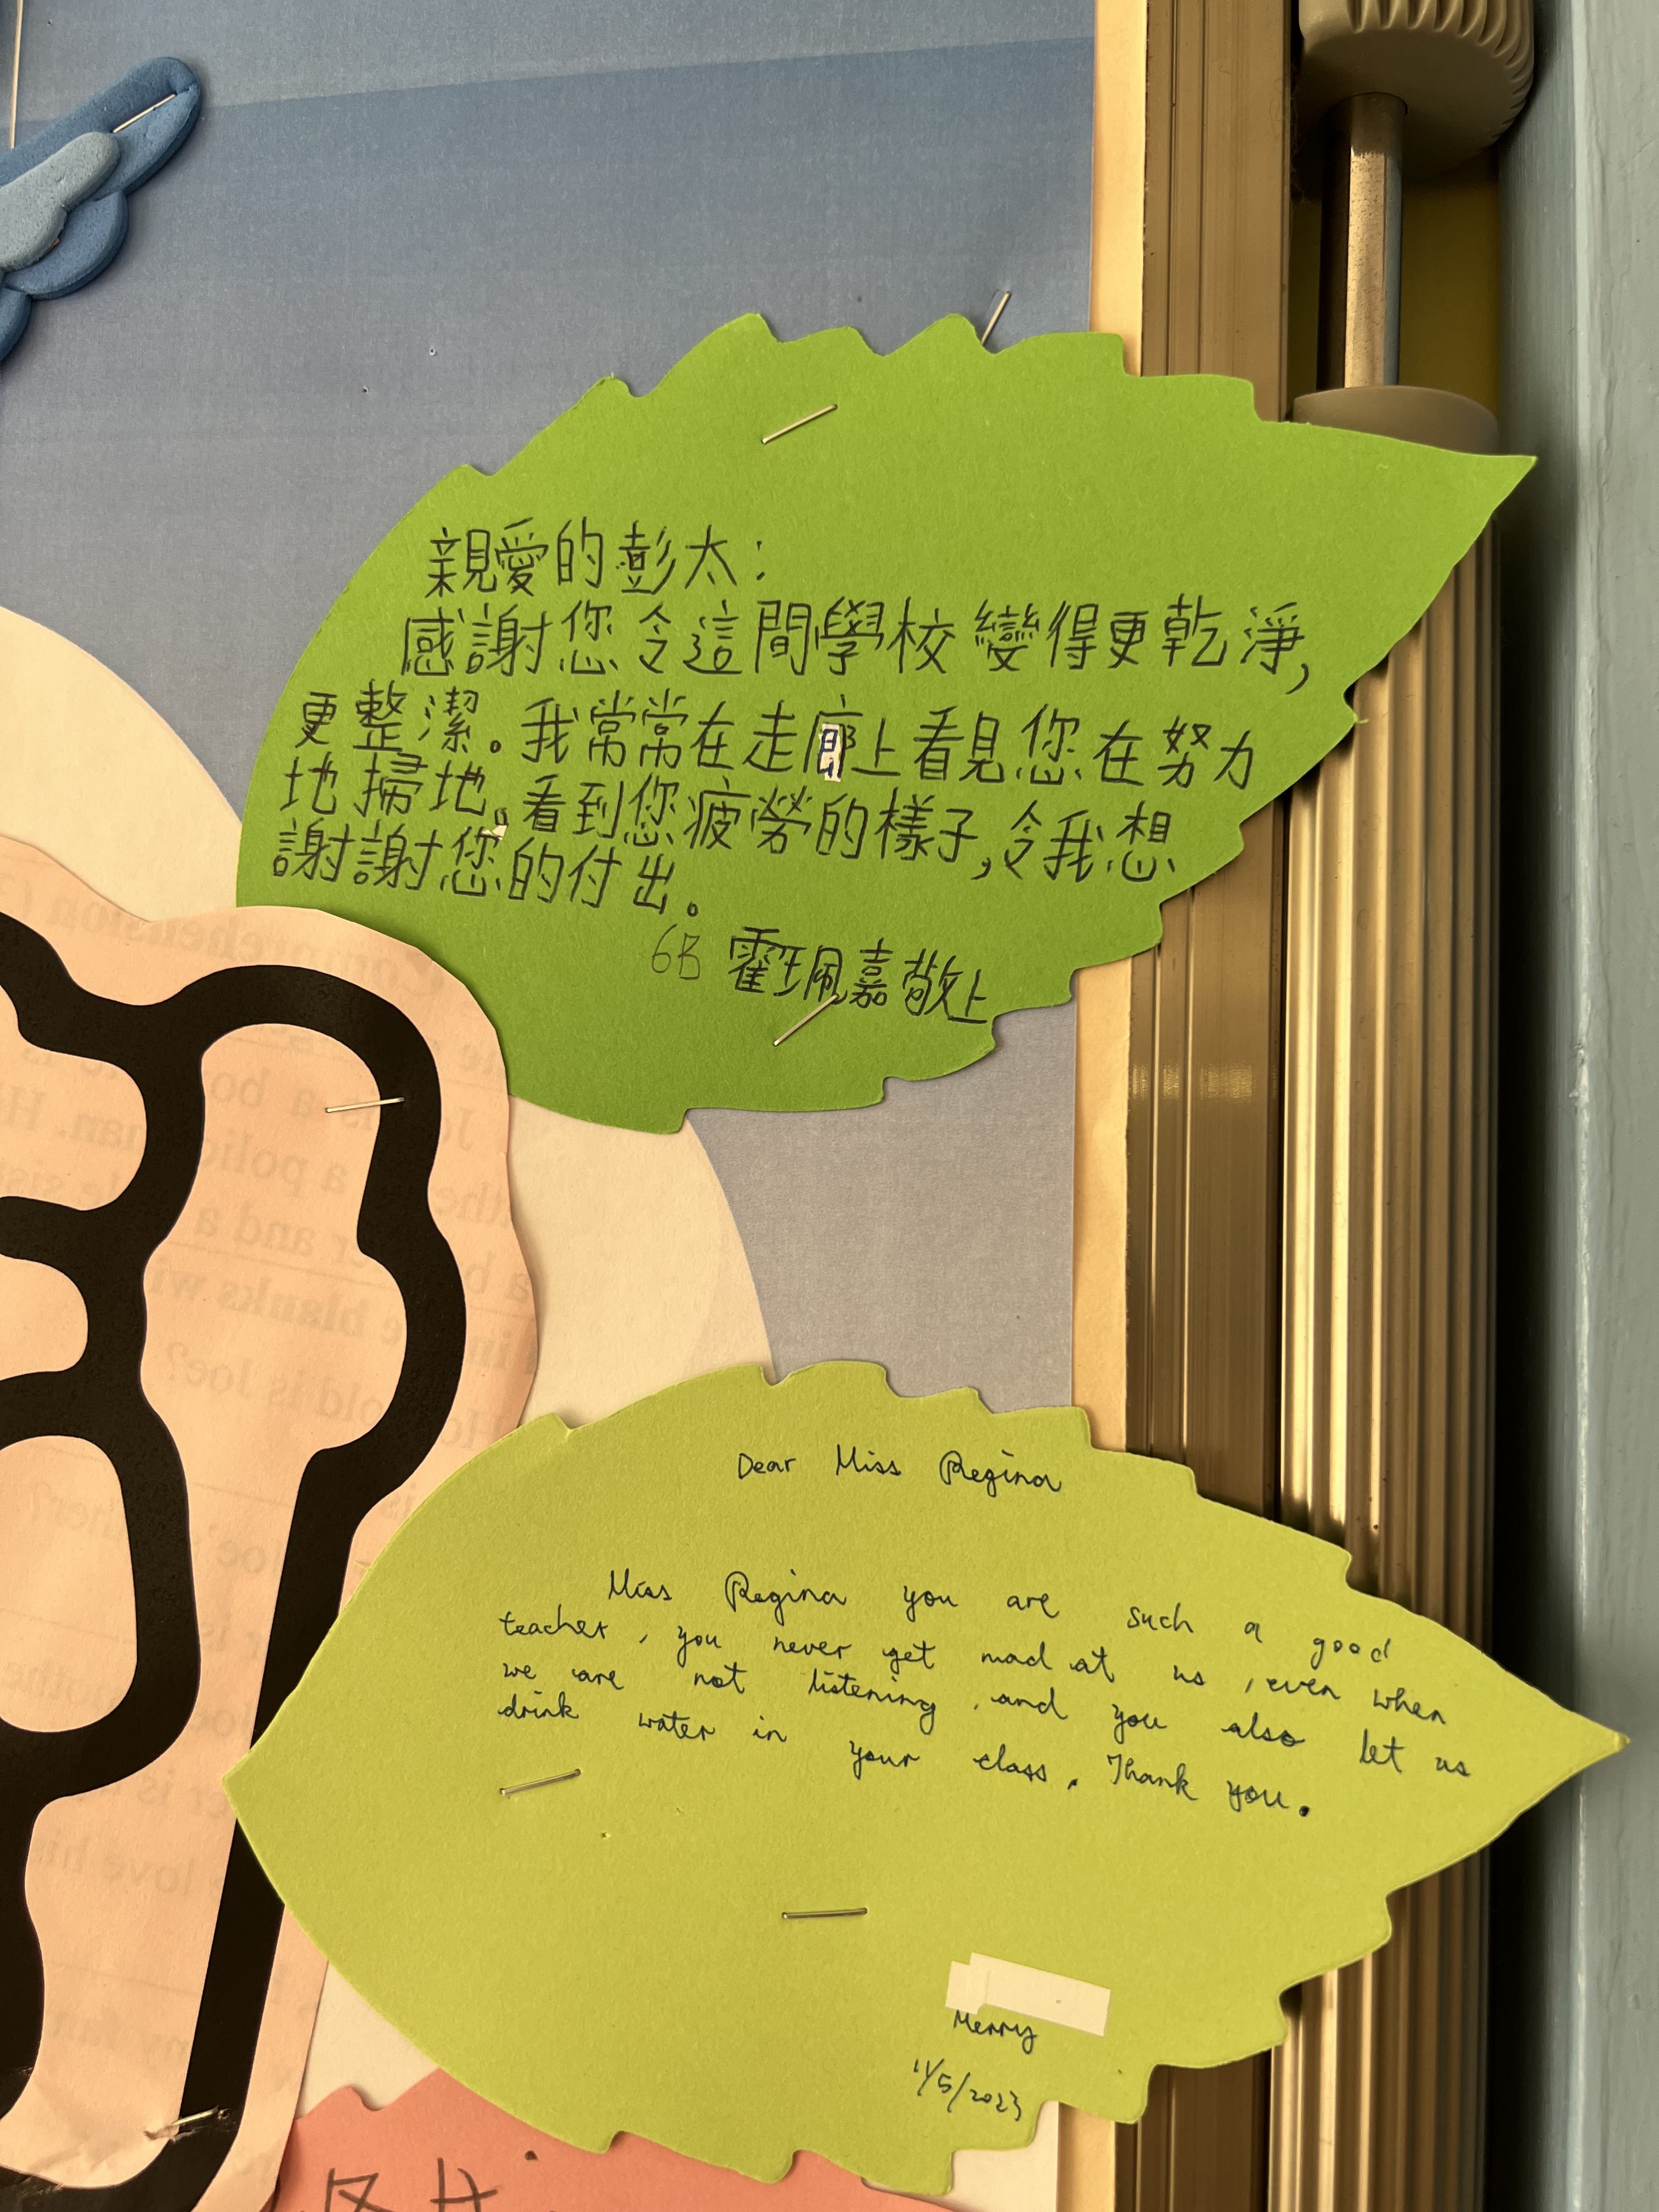 親愛的彭太：
感謝您令這間學校變得更乾淨，
更整潔。我常常在走廊上看見您在努力
地掃地，看到您疲勞的樣子，令我想
謝謝您的付出。
6B 霍珮嘉敬上
Dear Miss Regina
Miss Regina you are such a good
teacher, you never get mad at us, even when
we are not listening, and you also let us
drink water in your class. Thank you.
Merry
11/5/2023